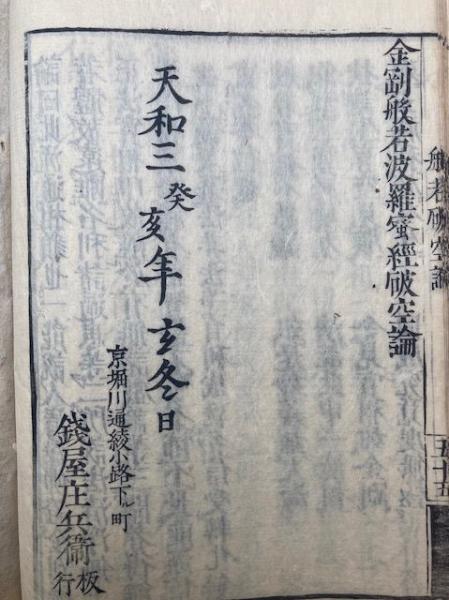 般若破空論
五十五
金剛般若波羅蜜經破空論
天和三癸亥年玄冬日
京堀川通綾小路下ル町
錢屋庄兵衞板行